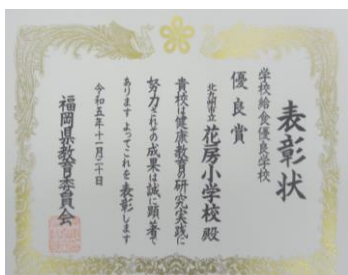 表彰状
学校給食優良学校
優良賞
北九州市立 花房小学校 殿
貴校は健康教育の研究実践に
努力されその成果は誠に顕著で
ありますよってこれを表彰します
令和五年十一月二十日
福岡県教育委員会